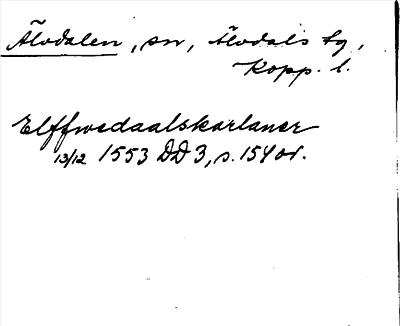 Älvdalen, sn, Älvdals tg,
Kopp. l.
Elffwedaalskarlaner
13/12 1553 DD 3, s. 154 or.